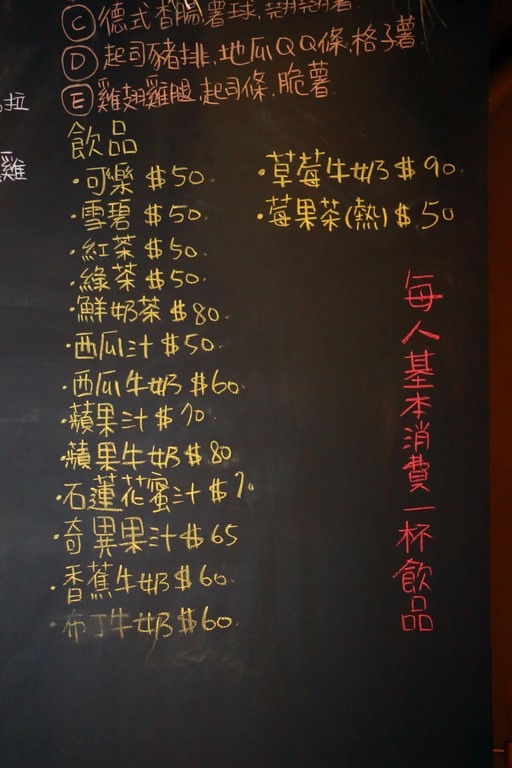 C 德式香腸.薯球.翅翅薯
D 起司豬排.地瓜QQ條.格子薯
E 雞翅雞腿.起司條.脆薯
拉
雞
飲品
·可樂 $50.
·雪碧 $50.
·紅茶 $50.
·綠茶 $50.
·鮮奶茶 $80.
·西瓜汁 $50.
·西瓜牛奶 $60
·蘋果汁 $70.
·蘋果牛奶 $80.
·石蓮花蜜汁 $70
·奇異果汁 $65
·香蕉牛奶 $60.
·布丁牛奶 $60.
·草莓牛奶 $90.
·莓果茶(熱) $50
每人基本消費一杯飲品